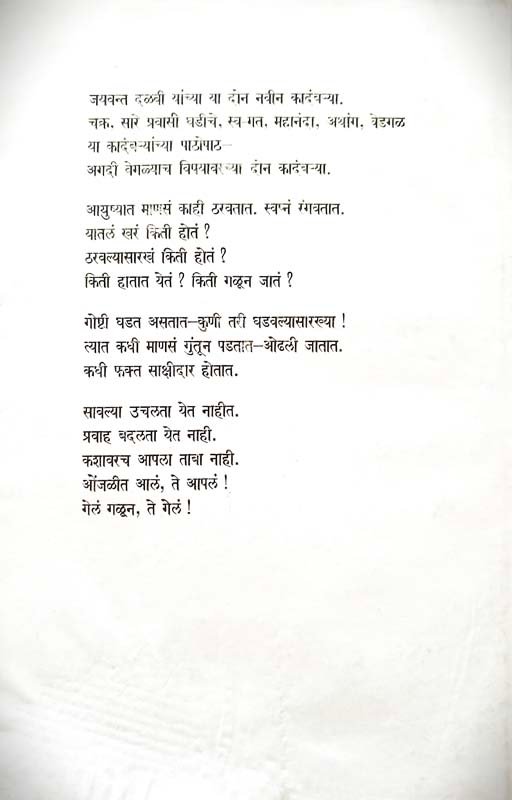 जयवन्त दळवी यांच्या या दोन नवीन कादंबऱ्या.
चक्र, सारे प्रवासी घडीचे, स्व-गत, महानंदा, अथांग, वेडगळ
या कादंबऱ्यांच्या पाठोपाठ—
अगदी वेगळ्याच विषयावरच्या दोन कादंबऱ्या.
आयुष्यात माणसं काही ठरवतात. स्वप्नं रंगवतात.
यातलं खरं किती होतं ?
ठरवल्यासारखं किती होतं ?
किती हातात येतं ? किती गळून जातं ?
गोष्टी घडत असतात—कुणी तरी घडवल्यासारख्या !
त्यात कधी माणसं गुंतून पडतात—ओढली जातात.
कधी फक्त साक्षीदार होतात.
सावल्या उचलता येत नाहीत.
प्रवाह बदलता येत नाही.
कशावरच आपला ताबा नाही.
ओंजळीत आलं, ते आपलं !
गेलं गळून, ते गेलं !